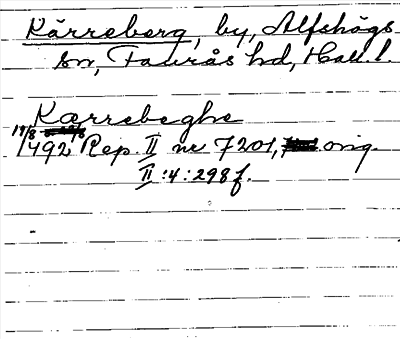 Kärreberg, by, Alfshögs
sn, Faurås hd, Hall. l.
Kærrebeghe
19/8
1492 Rep. II nr 7201, orig.
II:4:298f.